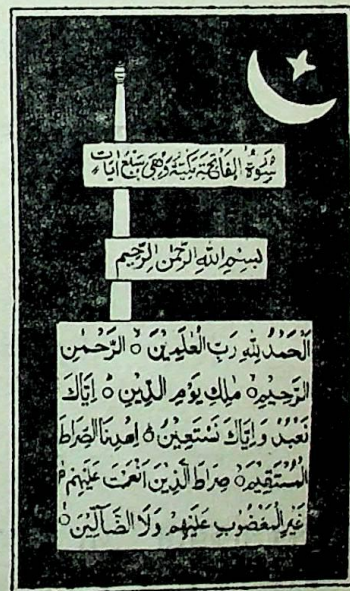 سُورَةُ الْفَاتِحَةِ مَكِّيَّةٌ وَّهِيَ سَبْعُ اٰيَاتٍ
بِسْمِ اللهِ الرَّحْمٰنِ الرَّحِيْمِ
اَلْحَمْدُ لِلّٰهِ رَبِّ الْعٰلَمِيْنَ ۝ الرَّحْمٰنِ
الرَّحِيْمِ ۝ مٰلِكِ يَوْمِ الدِّيْنِ ۝ اِيَّاكَ
نَعْبُدُ وَاِيَّاكَ نَسْتَعِيْنُ ۝ اِهْدِنَا الصِّرَاطَ
الْمُسْتَقِيْمَ ۝ صِرَاطَ الَّذِيْنَ اَنْعَمْتَ عَلَيْهِمْ ۝
غَيْرِ الْمَغْضُوْبِ عَلَيْهِمْ وَلَا الضَّآلِّيْنَ ۝